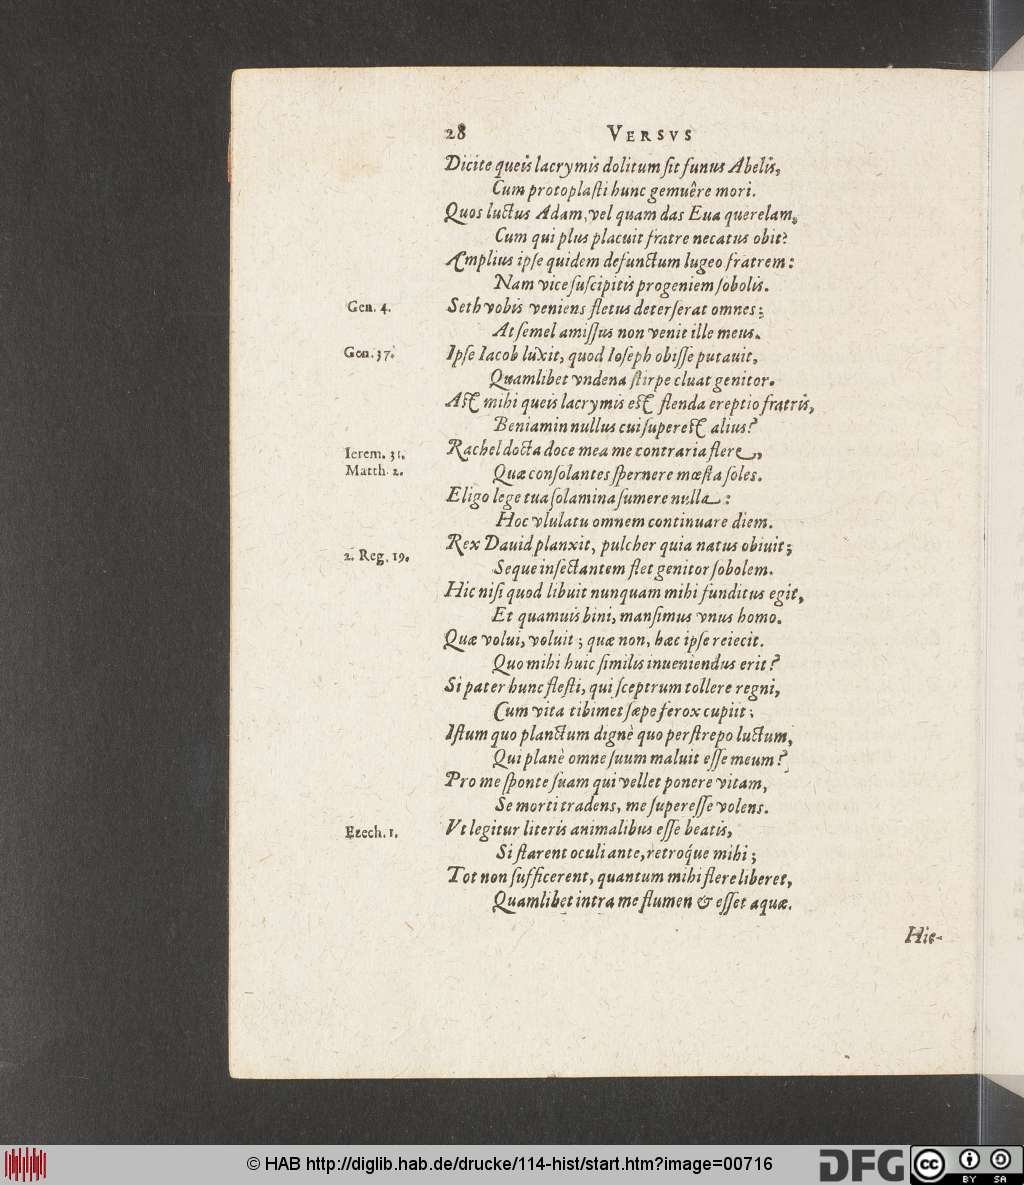 28 VERSVS
Dicite queis lacrymis dolitum sit funus Abelis,
Cum protoplasti hunc gemuêre mori.
Quos luctus Adam, vel quam das Eua querelam,
Cum qui plus placuit fratre necatus obit?
Amplius ipse quidem defunctum lugeo fratrem:
Nam vice suscipitis progeniem sobolis.
Gen. 4. Seth vobis veniens fletus deterserat omnes;
At semel amissus non venit ille meus.
Gen. 37. Ipse Iacob luxit, quod Ioseph obisse putauit,
Quamlibet vndena stirpe cluat genitor.
Ast mihi queis lacrymis est flenda ereptio fratris,
Beniamin nullus cui superest alius?
Ierem. 31. Rachel docta doce mea me contraria flere,
Matth. 2. Quæ consolantes spernere mœsta soles.
Eligo lege tua solamina sumere nulla:
Hoc vlulatu omnem continuare diem.
2. Reg. 19. Rex Dauid planxit, pulcher quia natus obiuit;
Seque insectantem flet genitor sobolem.
Hic nisi quod libuit nunquam mihi funditus egit,
Et quamuis bini, mansimus vnus homo.
Quæ volui, voluit; quæ non, hæc ipse reiecit.
Quo mihi huic similis inueniendus erit?
Si pater hunc flesti, qui sceptrum tollere regni,
Cum vita tibimet sæpe ferox cupiit;
Istum quo planctum dignè quo perstrepo luctum,
Qui planè omne suum maluit esse meum?
Pro me sponte suam qui vellet ponere vitam,
Se morti tradens, me superesse volens.
Ezech. 1. Vt legitur literis animalibus esse beatis,
Si starent oculi ante, retroq́ue mihi;
Tot non sufficerent, quantum mihi flere liberet,
Quamlibet intra me flumen & esset aquæ.
Hie-
© HAB http://diglib.hab.de/drucke/114-hist/start.htm?image=00716
DFG
cc BY SA